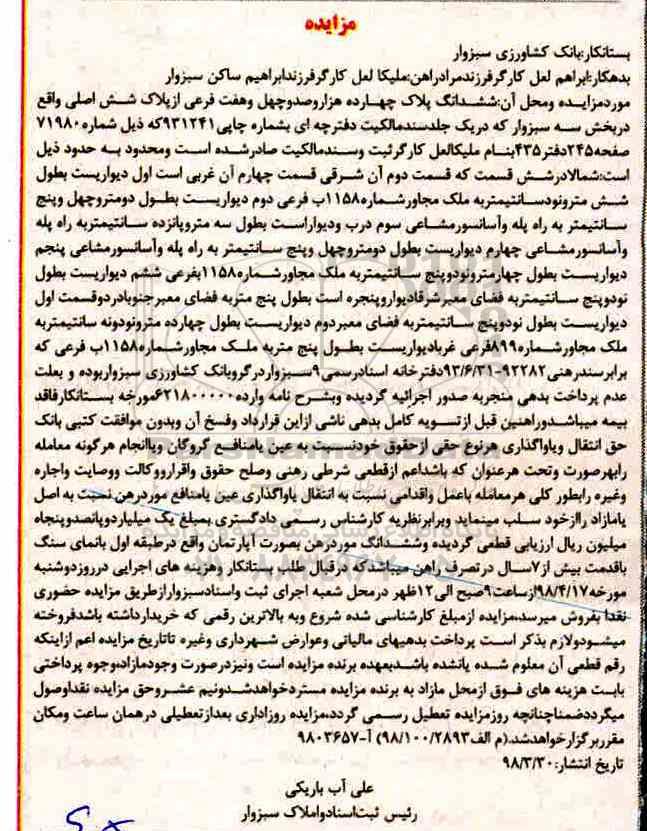 مزایده
بستانکار:بانک کشاورزی سبزوار
بدهکار:ابراهم لعل کارگرفرزندمرادراهن:ملیکا لعل کارگرفرزندابراهیم ساکن سبزوار
موردمزایده ومحل آن:ششدانگ پلاک چهارده هزاروصدوچهل وهفت فرعی ازپلاک شش اصلی واقع
دربخش سه سبزوار که دریک جلدسندمالکیت دفترچه ای بشماره چاپی۹۳۱۲۴۱که ذیل شماره۷۱۹۸۰
صفحه۲۴۵دفتر۴۳۵بنام ملیکالعل کارگرثبت وسندمالکیت صادرشده است ومحدود به حدود ذیل
است:شمالادرشش قسمت که قسمت دوم آن شرقی قسمت چهارم آن غربی است اول دیواریست بطول
شش مترونودسانتیمتربه ملک مجاورشماره۱۱۵۸ب فرعی دوم دیواریست بطول دومتروچهل وپنج
سانتیمتر به راه پله وآسانسورمشاعی سوم درب ودیواراست بطول سه متروپانزده سانتیمتربه راه پله
وآسانسورمشاعی چهارم دیواریست بطول دومتروچهل وپنج سانتیمتر به راه پله وآسانسورمشاعی پنجم
دیواریست بطول چهارمترونودوپنج سانتیمتربه ملک مجاورشماره۱۱۵۸بفرعی ششم دیواریست بطول
نودوپنج سانتیمتربه فضای معبرشرقادیواروپنجره است بطول پنج متربه فضای معبرجنوبادردوقسمت اول
دیواریست بطول نودوپنج سانتیمتربه فضای معبردوم دیواریست بطول چهارده مترونودونه سانتیمتربه
ملک مجاورشماره۸۹۹فرعی غربادیواریست بطول پنج متربه ملک مجاورشماره۱۱۵۸ب فرعی که
برابرسندرهنی۹۲۲۸۲-۹۳/۶/۳۱دفترخانه اسنادرسمی۹سبزواردرگروبانک کشاورزی سبزواربوده و بعلت
عدم پرداخت بدهی منجربه صدور اجرائیه گردیده وبشرح نامه وارده۶۲۱۸۰۰۰۰۰مورخه بستانکارفاقد
بیمه میباشدوراهنین قبل ازتسویه کامل بدهی ناشی ازاین قرارداد وفسخ آن وبدون موافقت کتبی بانک
حق انتقال ویاواگذاری هرنوع حقی ازحقوق خودنسبت به عین یامنافع گروگان ویاانجام هرگونه معامله
رابهرصورت وتحت هرعنوان که باشداعم ازقطعی شرطی رهنی وصلح حقوق واقرارووکالت ووصایت واجاره
وغیره رابطور کلی هرمعامله یاعمل واقدامی نسبت به انتقال یاواگذاری عین یامنافع موردرهن نسبت به اصل
یامازاد راازخود سلب مینماید وبرابرنظریه کارشناس رسمی دادگستری بمبلغ یک میلیاردوپانصدوپنجاه
میلیون ریال ارزیابی قطعی گردیده وششدانگ موردرهن بصورت آپارتمان واقع درطبقه اول بانمای سنگ
باقدمت بیش از۷سال درتصرف راهن میباشدکه درقبال طلب بستانکار وهزینه های اجرایی درروزدوشنبه
مورخه۹۸/۴/۱۷ازساعت۹صبح الی۱۲ظهر درمحل شعبه اجرای ثبت واسنادسبزوارازطریق مزایده حضوری
نقدا بفروش میرسد،مزایده ازمبلغ کارشناسی شده شروع وبه بالاترین رقمی که خریدارداشته باشدفروخته
میشودولازم بذکر است پرداخت بدهیهای مالیاتی وعوارض شهرداری وغیره تاتاریخ مزایده اعم ازاینکه
رقم قطعی آن معلوم شده یانشده باشدبعهده برنده مزایده است ونیزدرصورت وجودمازادوجوه پرداختی
بابت هزینه های فوق ازمحل مازاد به برنده مزایده مستردخواهدشدونیم عشروحق مزایده نقداوصول
میگرددضمناچنانچه روزمزایده تعطیل رسمی گردد،مزایده روزاداری بعدازتعطیلی درهمان ساعت ومکان
مقرربرگزارخواهدشد.(م الف۹۸/۱۰۰/۲۸۹۳) آ-۹۸۰۳۶۵۷
تاریخ انتشار:۹۸/۳/۳۰
علی آب باریکی
رئیس ثبت‌اسنادواملاک سبزوار